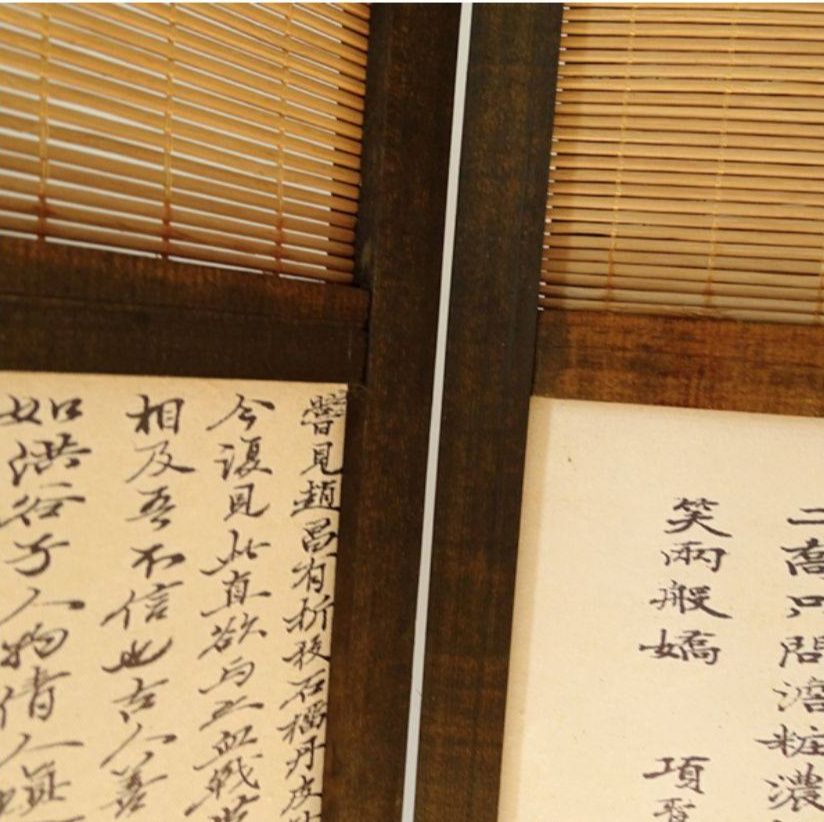 二喬只問澹粧濃
笑兩般嬌 項聖
嘗見趙昌有折枝石榴丹皮
今復見此直欲与之血戰
相及吾不信也古人善
如洪谷子人物倩人